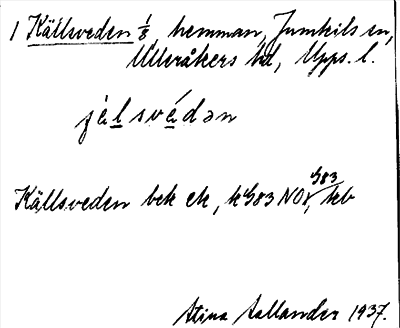 1 Källsveden 1/8, hemman, Jumkils sn,
Ulleråkers hd, Upps. l.
jèlsvédən
Källsveden bek ek, k G83 NO, G83 kb
Stina Aallander 1937.